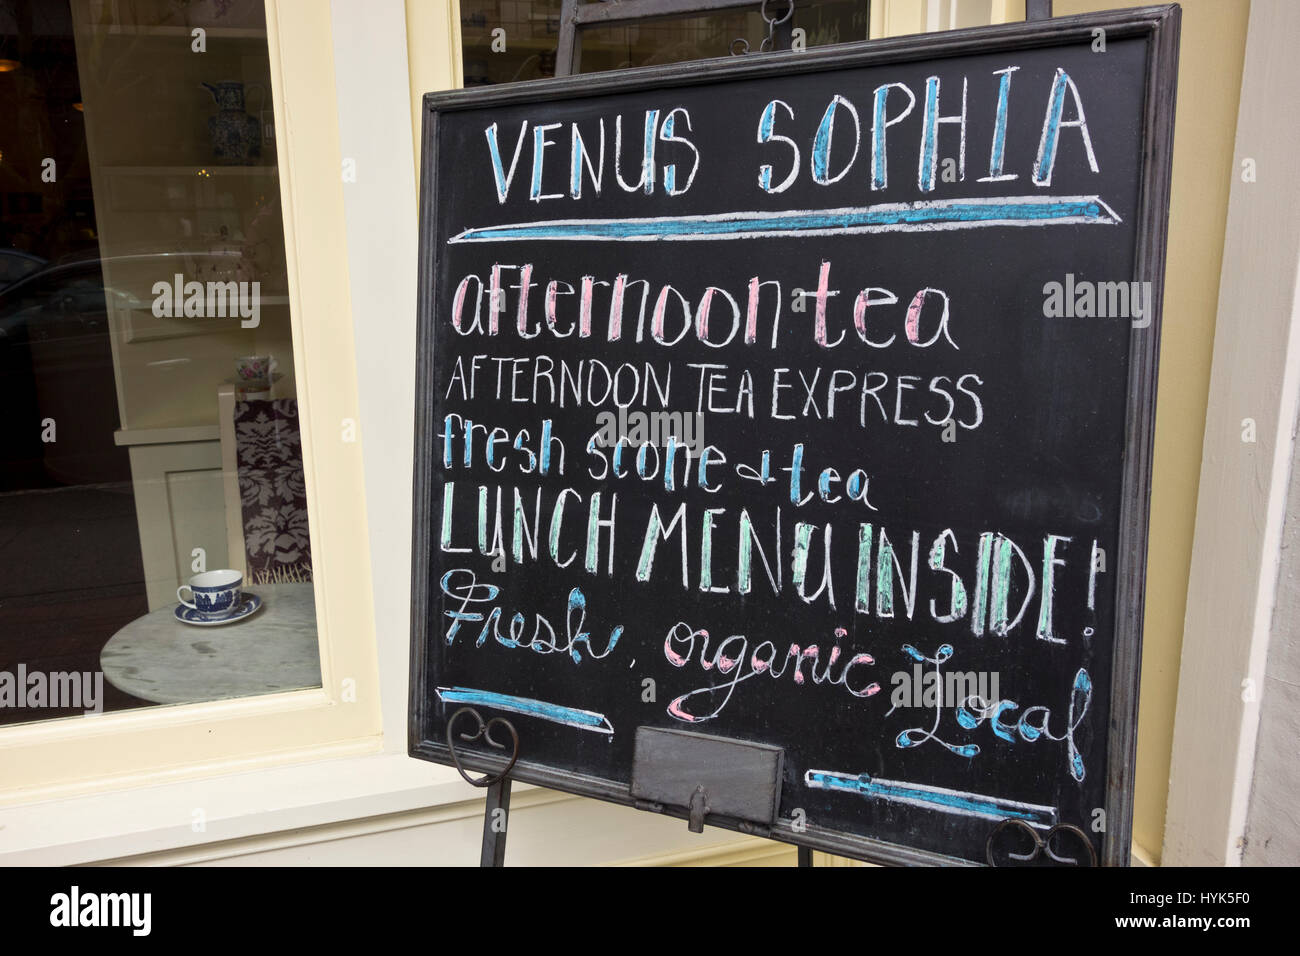 VENUS SOPHIA
afternoon tea
AFTERNOON TEA EXPRESS
fresh scone & tea
LUNCH MENU INSIDE!
Fresh, organic, Local
alamy
Image ID: HYK5F0
www.alamy.com